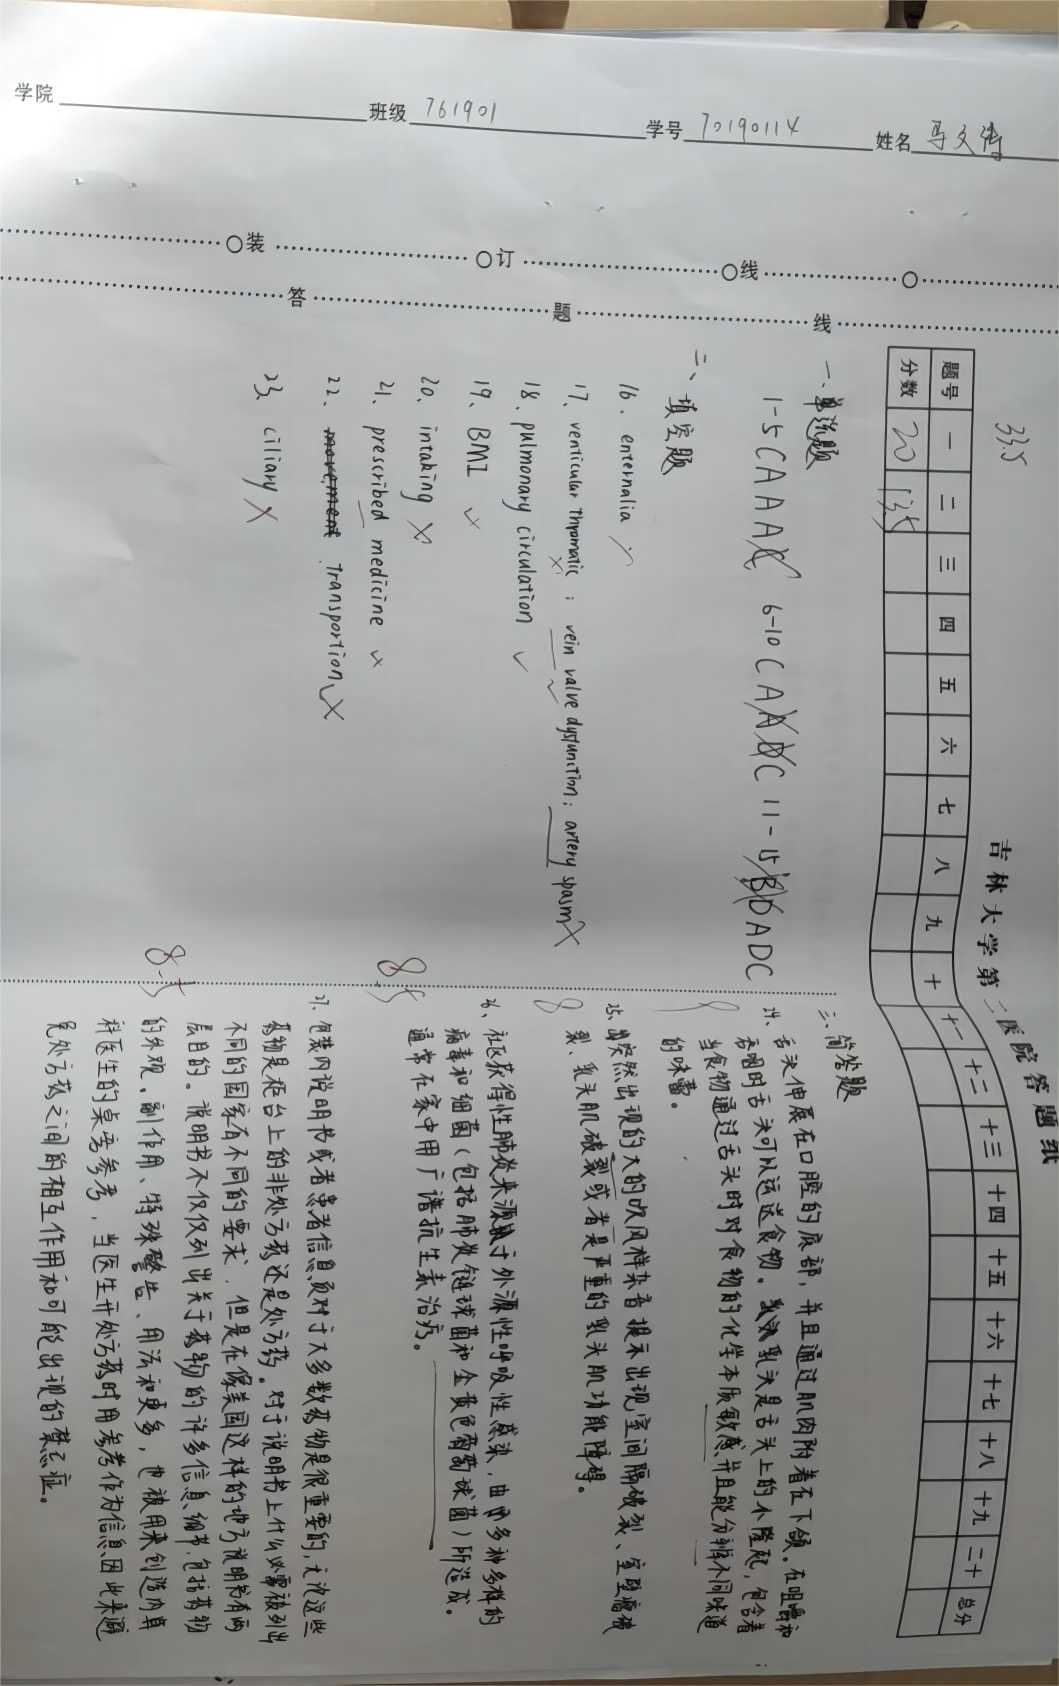 学院 班级 761901 学号 70190114 姓名 马文涛
装 订 线
答 题 线
吉林大学第二医院答题纸
33.5
题号 一 二 三 四 五 六 七 八 九 十 十一 十二 十三 十四 十五 十六 十七 十八 十九 二十 总分
分数 20 13.5
一、单选题
1-5 CAAAC 6-10 CAABC 11-15 BDADC
二、填空题
16. enternalia
17. venticular thromatic ; vein valve dysfunition; artery spasm
18. pulmonary circulation
19. BMI
20. intaking
21. prescribed medicine
22. movement transportion
23. ciliary
三、简答题
9
24、舌头伸展在口腔的底部，并且通过肌肉附着在下颌。在咀嚼和
吞咽时舌头可以运送食物。乳头是舌头上的小隆起，包含着
当食物通过舌头时对食物的化学本质敏感，并且能分辨不同味道
的味蕾。
8
25、突然出现的大的吹风样杂音提示出现室间隔破裂、室壁瘤破
裂、乳头肌破裂或者是严重的乳头肌功能障碍。
8.5
26、社区获得性肺炎来源于外源性呼吸性感染，由多种多样的
病毒和细菌（包括肺炎链球菌和金黄色葡萄球菌）所造成。
通常在家中用广谱抗生素治疗。
8.5
27、包装内说明书或者患者信息页对于大多数药物是很重要的，无论这些
药物是柜台上的非处方药还是处方药。对于说明书上什么必需被列出
不同的国家有不同的要求，但是在像美国这样的地方说明书有两
层目的。说明书不仅仅列出关于药物的许多信息细节，包括药物
的外观、副作用、特殊警告、用法和更多，也被用来创造内
科医生的桌旁参考，当医生开处方药时用参考作为信息因此来避
免处方药之间的相互作用和可能出现的禁忌症。